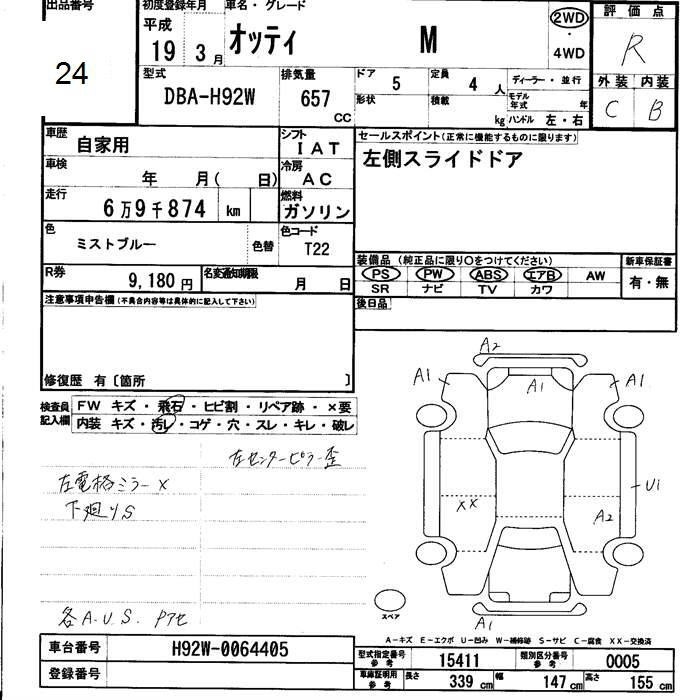 出品番号
24
初度登録年月
平成
19 3月
車名・グレード
オッティ M
2WD
・
4WD
評価点
R
外装 内装
C B
型式
DBA-H92W
排気量
657
CC
ドア 5
形状
定員 4人
積載 kg
ディーラー・並行
モデル年式 年
ハンドル 左・右
車歴
自家用
シフト
IAT
車検
年 月( 日)
冷房
AC
走行
6万9千874 km
燃料
ガソリン
色
ミストブルー
色替
色コード
T22
R券
9,180円
名変通知期限
月 日
セールスポイント(正常に機能するものに限ります)
左側スライドドア
装備品(純正品に限り○をつけてください)
新車保証書
PS PW ABS エアB AW
有・無
SR ナビ TV カワ
後日品
注意事項申告欄(不具合内容等は具体的に記入して下さい)
修復歴 有〔箇所 〕
検査員記入欄
FW キズ・飛石・ヒビ割・リペア跡・×要
内装 キズ・汚レ・コゲ・穴・スレ・キレ・破レ
左センターピラー歪
左電格ミラー×
下廻りS
各A.U.S. Pアセ
A2
A1
A1
A1
U1
XX
A2
A1
スペア
A-キズ E-エクボ U-凹み W-補修跡 S-サビ C-腐食 XX-交換済
車台番号
H92W-0064405
登録番号
型式指定番号
参考
15411
類別区分番号
参考
0005
車庫証明用
参考
長さ 339cm
幅 147cm
高さ 155cm